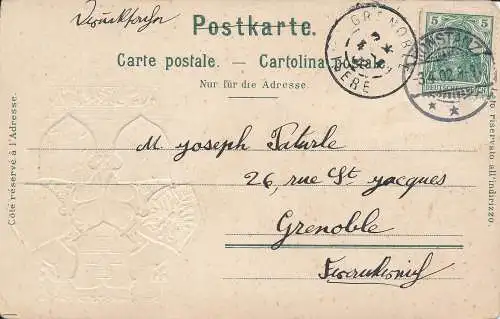 Drucksache
Postkarte.
Carte postale. — Cartolina postale.
Nur für die Adresse.
Côté réservé à l'Adresse.
Lato riservato all'indirizzo.
GRENOBLE
ISERE
KONSTANZ
3.4.02.
5 5
M. Joseph Faturle
26, rue St Jacques
Grenoble
Frankreich